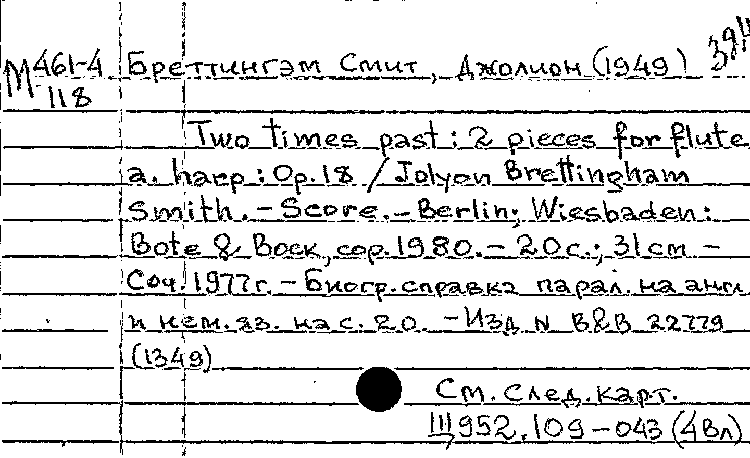 М461-4 Бреттингэм Смит, Джолион (1949)
118
Two times past: 2 pieces for flute
a. harp: Op.18 / Jolyon Brettingham
Smith. - Score. - Berlin; Wiesbaden:
Bote & Bock, cop. 1980. - 20 с.; 31 см -
Соч. 1977 г. - Биогр. справка парал. на англ
и нем. яз. на с. 20. - Изд. N B&B 22779
(1349)
См. след. карт.
III 952.109-043 (4вл)